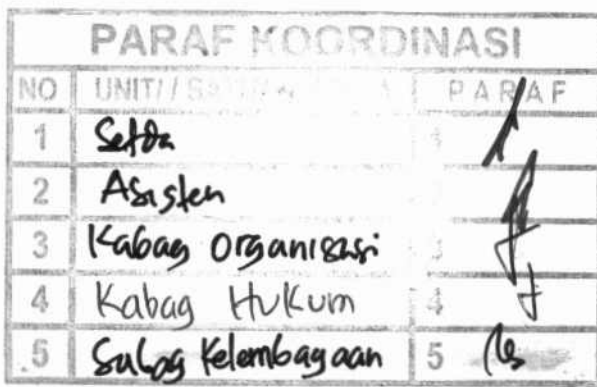 PARAF KOORDINASI
NO UNIT/ / PARAF
1 Setda 1
2 Asisten
3 Kabag Organisasi 3
4 Kabag Hukum 4
5 Subag Kelembagaan 5